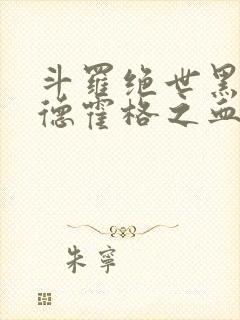 斗羅绝世黑
德霍格之血
朱寧